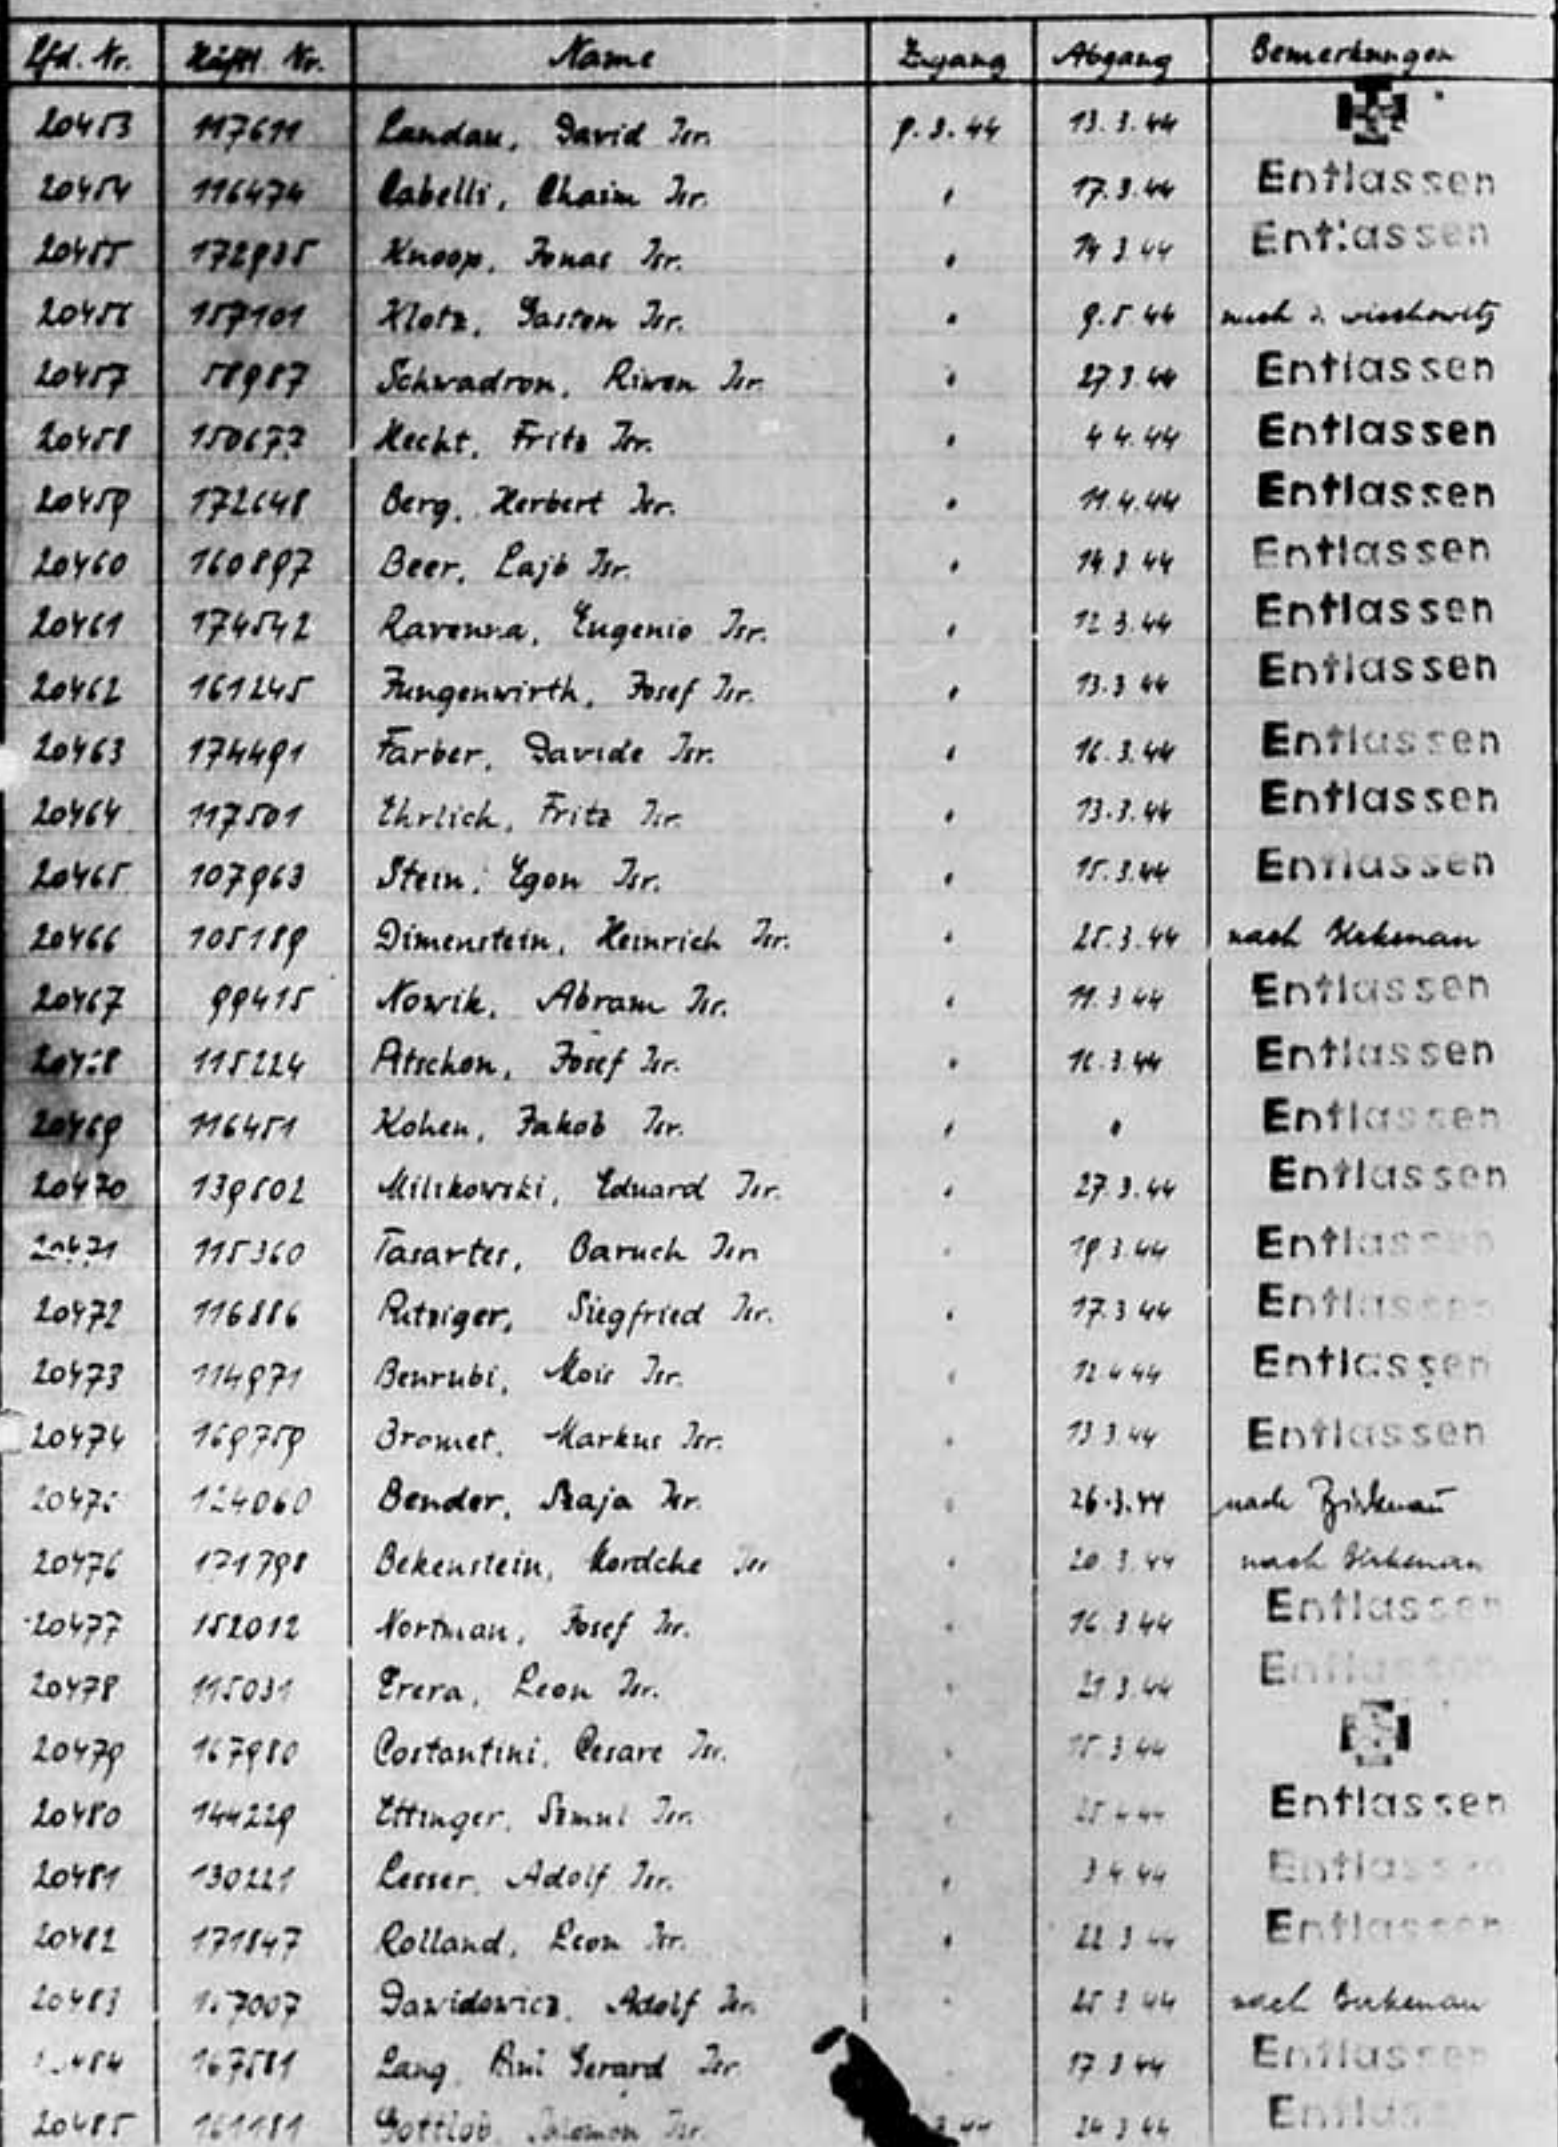 Lfd. Nr. Häftl. Nr. Name Zugang Abgang Bemerkungen
20453 117611 Landau, David Isr. 9.3.44 13.3.44
20454 116474 Cabelli, Chaim Isr. " 17.3.44 Entlassen
20455 172935 Knoop, Jonas Isr. " 14 3 44 Entlassen
20456 157101 Klotz, Gaston Isr. " 9.5 44 nach
20457 58987 Schwadron, Riwen Isr. " 27 3.44 Entlassen
20458 Hecht, Fritz Isr. " 4 4.44 Entlassen
20459 172648 Berg, Herbert Isr. " 11.4.44 Entlassen
20460 160897 Beer, Lajb Isr. " 14.3 44 Entlassen
20461 174542 Ravenna, Eugenio Isr. " 12 3.44 Entlassen
20462 161245 Jungenwirth, Josef Isr. " 13.3 44 Entlassen
20463 174491 Farber, Davide Isr. " 16.3.44 Entlassen
20464 117501 Ehrlich, Fritz Isr. " 13.3.44 Entlassen
20465 107963 Stein, Egon Isr. " 15.3.44 Entlassen
20466 105189 Dimenstein, Heinrich Isr. " 25.3.44 nach Birkenau
20467 99415 Nowik, Abram Isr. " 11.3 44 Entlassen
115224 Atschon, Josef Isr. " 16.3.44 Entlassen
20469 116451 Kohen, Jakob Isr. " " Entlassen
20470 139502 Milikowski, Eduard Isr. " 27.3.44 Entlassen
115360 Tasartes, Baruch Isr. " 19 3.44 Entlassen
20472 116886 Siegfried Isr. " 17.3 44 Entlassen
20473 114971 Benrubi, Mois Isr. " 12 4 44 Entlassen
20474 169759 Bromet, Markus Isr. " 13 3.44 Entlassen
124060 Bender, Szaja Isr. " 26.3.44 nach Birkenau
20476 171798 Bekenstein, Mordche Isr " 20 3.44 nach Birkenau
20477 152012 Nortman, Josef Isr. " 16 3 44 Entlassen
20478 115031 Errera, Leon Isr. " 21 3.44 Entlassen
20479 167980 Costantini, Cesare Isr. " 15 3 44
20480 144229 Ettinger, Szmul Isr. " 25 4 44 Entlassen
20481 130221 Lesser, Adolf Isr. " 3 4 44 Entlassen
20482 171847 Rolland, Leon Isr. " 22 3 44 Entlassen
20483 Dawidowicz, Adolf Isr. " 25 3 44 nach Birkenau
167581 Lang, Gerard Isr " 17 3 44 Entlassen
20485 161181 Gottlob, Salomon Isr. 24 3 44 Entlassen